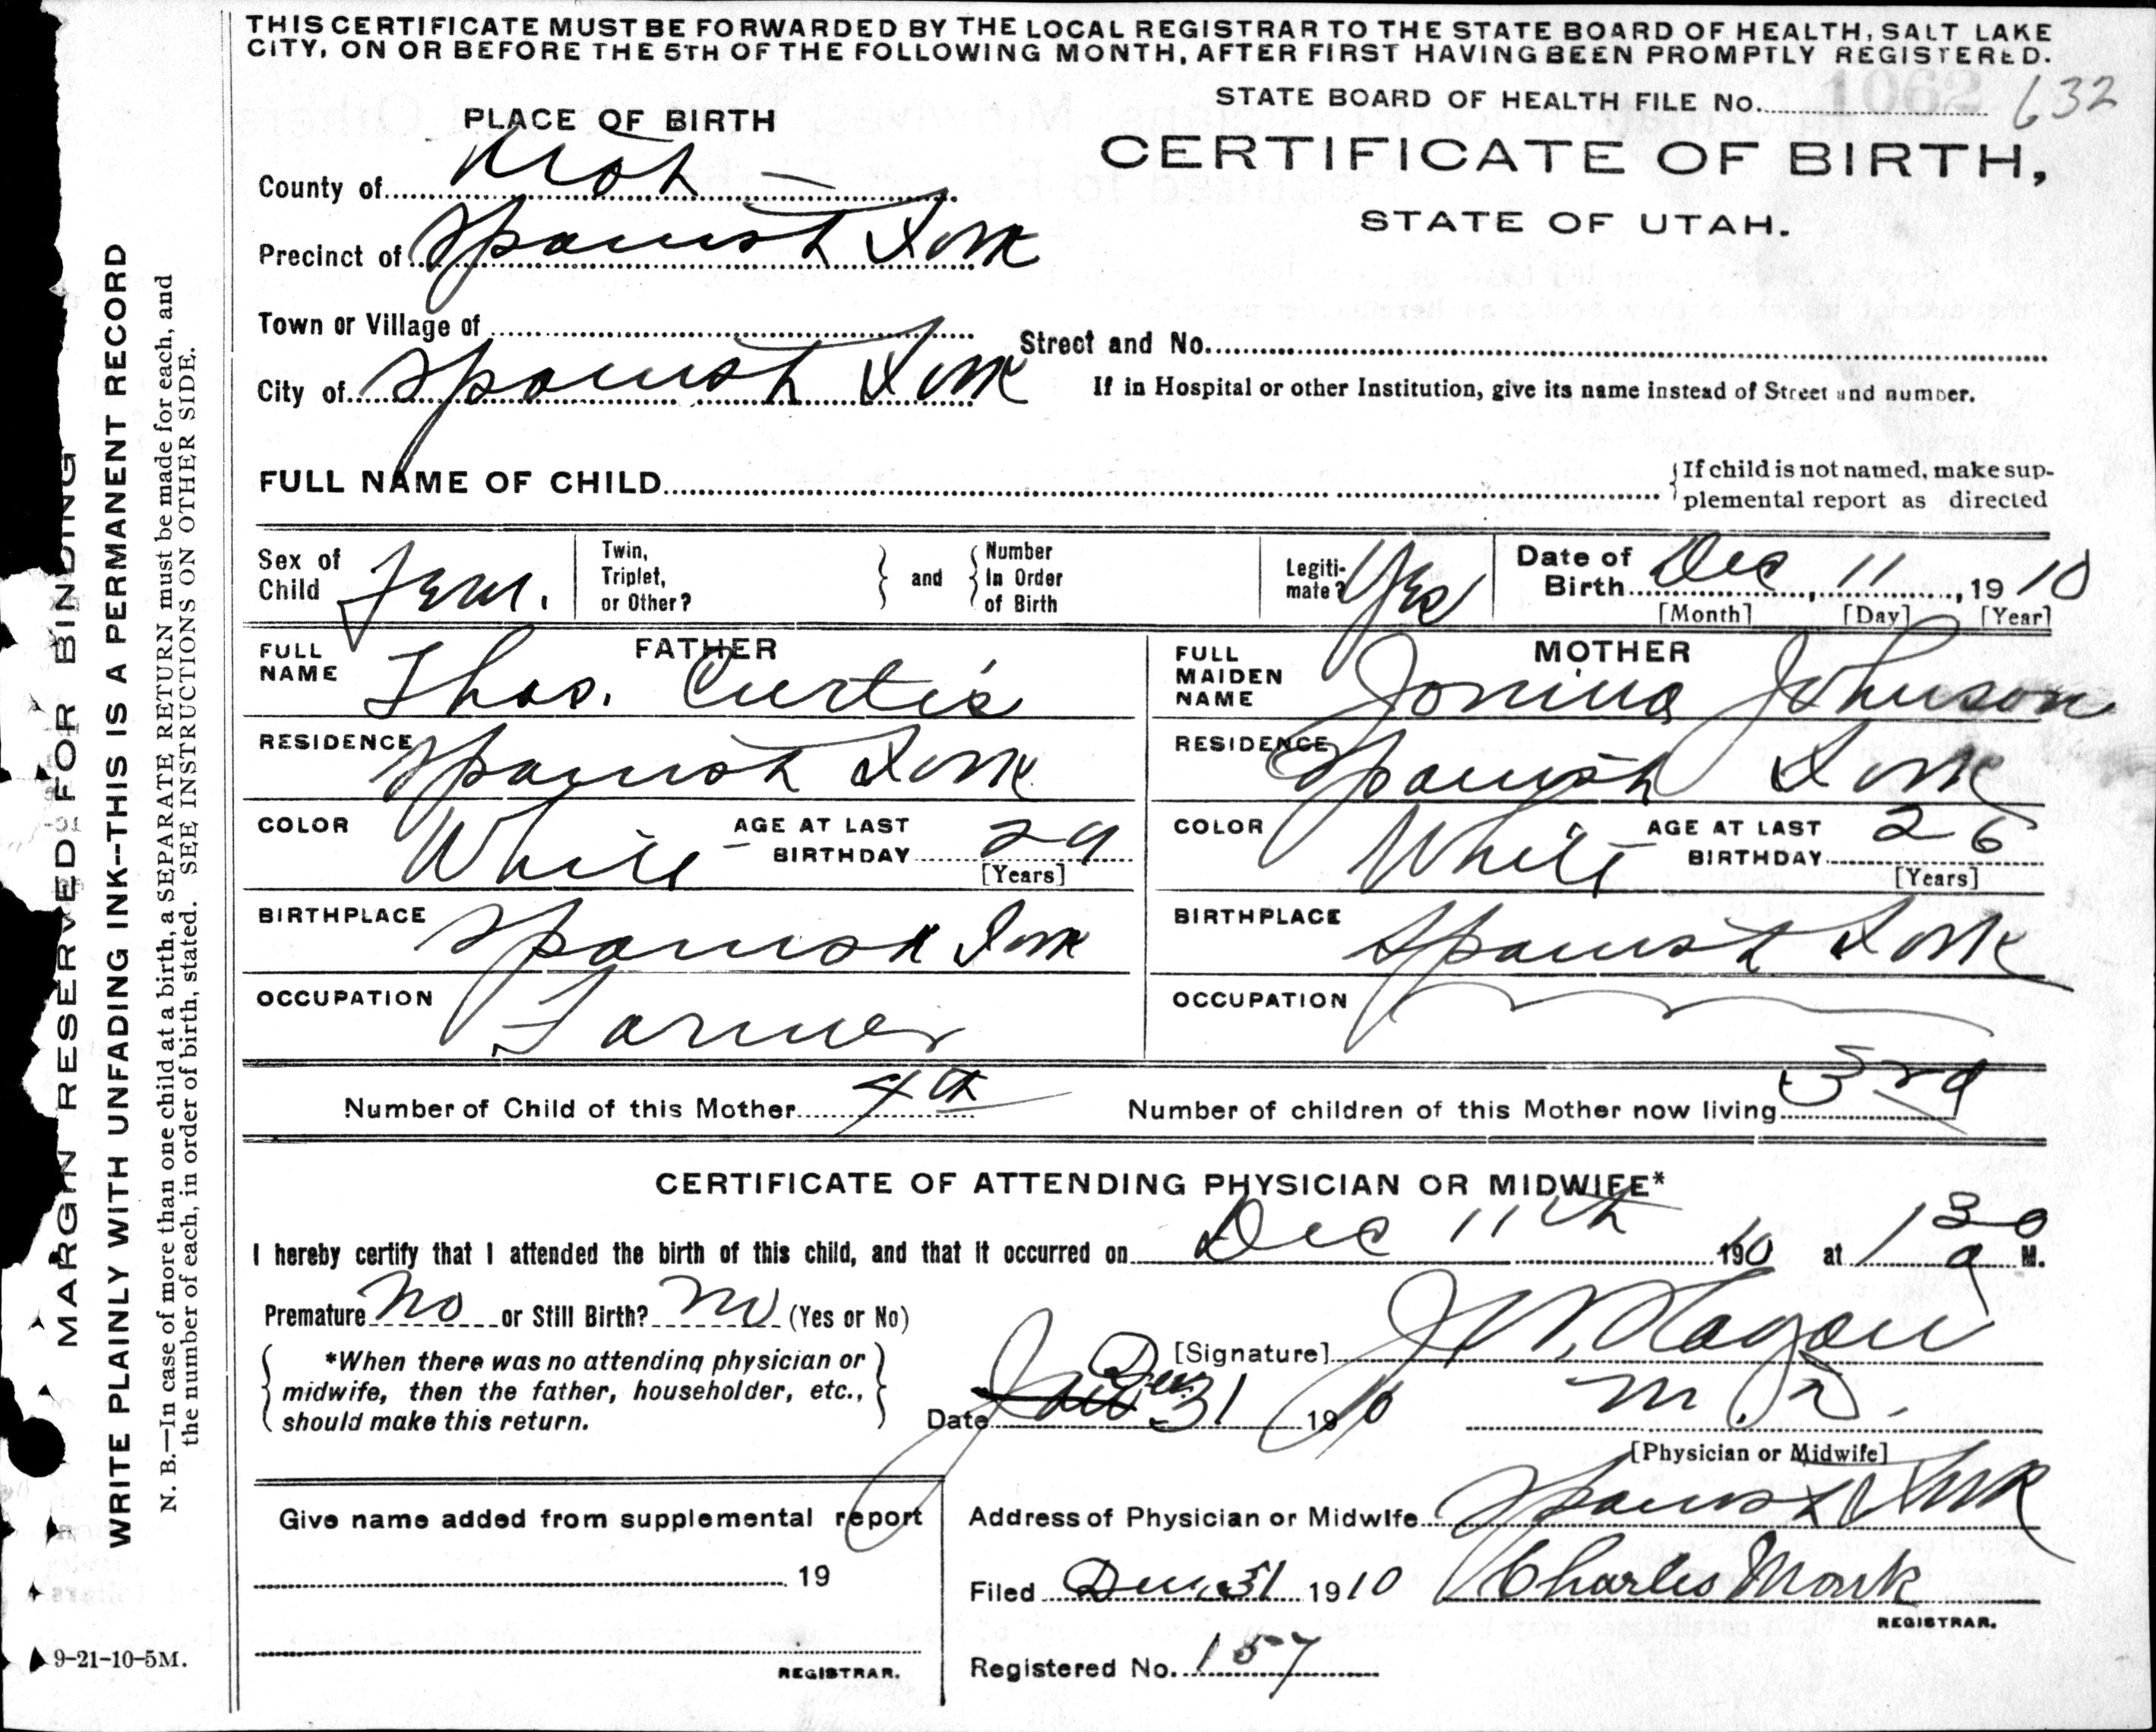 THIS CERTIFICATE MUST BE FORWARDED BY THE LOCAL REGISTRAR TO THE STATE BOARD OF HEALTH, SALT LAKE
CITY, ON OR BEFORE THE 5TH OF THE FOLLOWING MONTH, AFTER FIRST HAVING BEEN PROMPTLY REGISTERED.
STATE BOARD OF HEALTH FILE No. 1062 632
PLACE OF BIRTH
CERTIFICATE OF BIRTH,
STATE OF UTAH.
County of Utah
Precinct of Spanish Fork
Town or Village of
Street and No.
City of Spanish Fork
If in Hospital or other Institution, give its name instead of Street and number.
FULL NAME OF CHILD
If child is not named, make sup-
plemental report as directed
Sex of Child Fem.
Twin, Triplet, or Other? and Number In Order of Birth
Legiti-mate? Yes
Date of Birth Dec 11, 1910
[Month] [Day] [Year]
FATHER
FULL NAME Thos. Curtis
MOTHER
FULL MAIDEN NAME Jonina Johnson
RESIDENCE Spanish Fork
RESIDENCE Spanish Fork
COLOR White AGE AT LAST BIRTHDAY 29 [Years]
COLOR White AGE AT LAST BIRTHDAY 26 [Years]
BIRTHPLACE Spanish Fork
BIRTHPLACE Spanish Fork
OCCUPATION Farmer
OCCUPATION
Number of Child of this Mother 4th
Number of children of this Mother now living 3rd
CERTIFICATE OF ATTENDING PHYSICIAN OR MIDWIFE*
I hereby certify that I attended the birth of this child, and that it occurred on Dec 11th 1910 at 1 30 a M.
Premature No or Still Birth? No (Yes or No)
*When there was no attending physician or
midwife, then the father, householder, etc.,
should make this return.
[Signature] J W
Date Dec 31 1910
M.D.
[Physician or Midwife]
Give name added from supplemental report
19
REGISTRAR.
Address of Physician or Midwife Spanish Fork
Filed Dec. 31 1910 Charles Monk
REGISTRAR.
Registered No. 157
MARGIN RESERVED FOR BINDING
WRITE PLAINLY WITH UNFADING INK--THIS IS A PERMANENT RECORD
N. B.—In case of more than one child at a birth, a SEPARATE RETURN must be made for each, and
the number of each, in order of birth, stated. SEE INSTRUCTIONS ON OTHER SIDE.
9-21-10-5M.